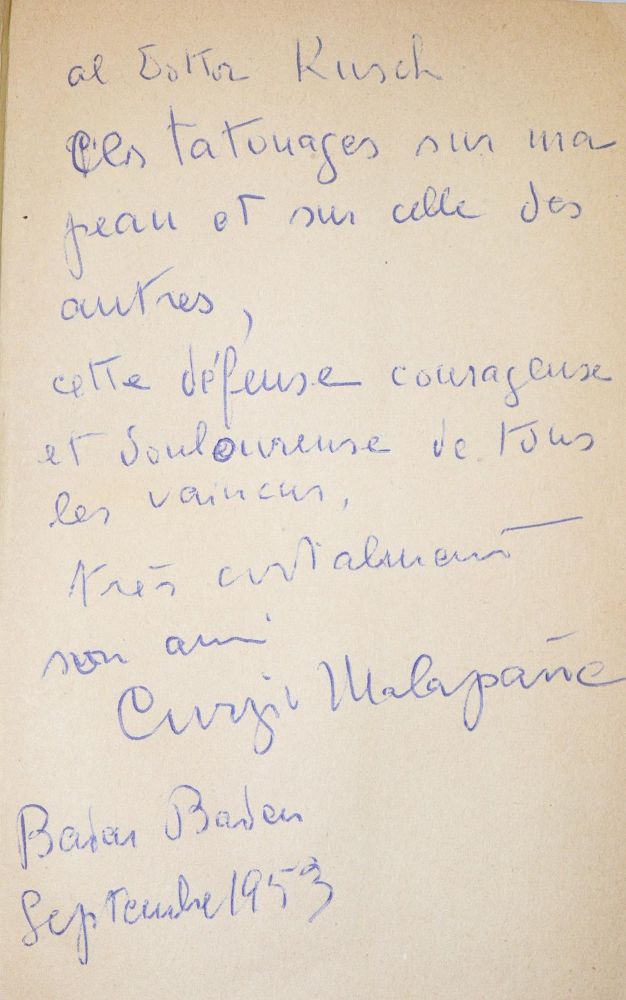 al Dottor Kusch
Ces tatouages sur ma
peau et sur celle des
autres,
cette défense courageuse
et douloureuse de tous
les vaincus,
très cordialment
son ami
Curzio Malaparte
Baden Baden
Septembre 1953